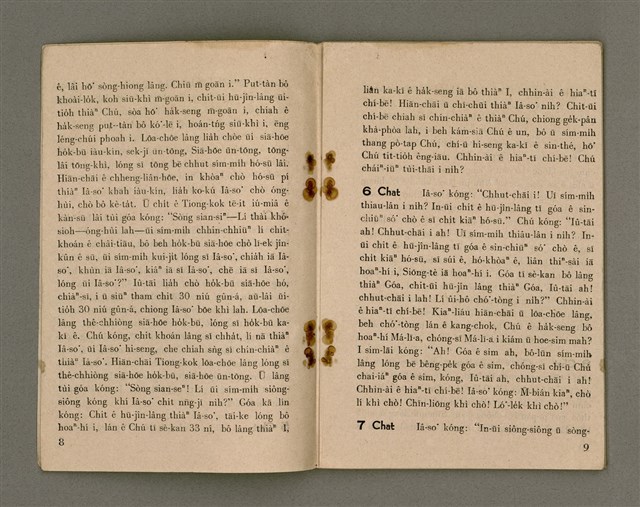 ê, lâi hō͘ sòng-hiong lâng. Chiū m̄ goān i.” Put-tàn bô
khoài-lo̍k, koh siū-khì m̄-goān i, chit-ūi hū-jîn-lâng ūi-
tio̍h thiàⁿ Chú, sòa hō͘ ha̍k-seng m̄-goān i, chiah ê
ha̍k-seng put--tàn bô kó͘-lē i, hoán-tńg siū-khì i, ēng
léng-chúi phoah i. Lóa-chōe lâng lia̍h chòe ūi siā-hōe
ho̍k-bū iàu-kín, sek-jī ūn-tōng, Siā-hōe ūn-tōng, tōng-
lâi tōng-khì, lóng sī tōng bē chhut sím-mi̍h hó-sū lâi.
Hiān-chāi ê chheng-liân-hōe, in khòaⁿ chò hō͘-sū pí
thiàⁿ Iâ-so͘ khah iàu-kín, lia̍h ko-kú Iâ-so͘ chò óng-
húi, chò bô kè-ta̍t. Ū chit ê Tiong-kok tē-it iú-miâ ê
kàn-sū lâi tùi góa kóng: “Sòng sian-siⁿ—Lí thài khó-
sioh—óng-húi lah—ūi sím-mi̍h chhin-chhiūⁿ lí chit-
khoán ê châi-tiāu, bô beh ho̍k-bū siā-hōe chò lī-ek jîn-
kûn ê sū, ūi sím-mi̍h kui-ji̍t lóng sī Iâ-so͘, chia̍h iā Iâ-
so͘, khùn iā Iâ-so͘, kiâⁿ iā sī Iâ-so͘, chē iā sī Iâ-so͘,
lóng ūi Iâ-so͘?” Iû-tāi lia̍h chò ho̍k-bū siā-hōe hó,
chiâⁿ-sī, i ū siūⁿ tham chit 30 niú gûn-á, aū-lâi ūi-
tio̍h 30 niú gûn-á, chiong Iâ-so͘ bōe khì lah. Lóa-chōe
lâng thê-chhiòng siā-hōe ho̍k-bū, lóng sī ho̍k-bū ka-
kī ê. Chú kóng, chit khoán lâng sī chha̍t, lí nā thiàⁿ
Iâ-so͘, ūi Iâ-so͘ hi-seng, che chiah sǹg sī chin-chiàⁿ ê
thiàⁿ Iâ-so͘. Hiān-chāi Tiong-kok lóa-chōe lâng lóng sī
thê-chhiòng siā-hōe ho̍k-bū, siā-hōe ūn-tōng. Ū lâng
tùi góa kóng: “Sòng sian-seⁿ! Lí ūi sím-mi̍h siông-
siông kóng khí Iâ-so͘ chit nn̄g-jī nih?” Góa kā lín
kóng: Chit ê hū-jîn-lâng thiàⁿ Iâ-so͘, tāi-ke lóng bô
hoaⁿ-hí i, lán ê Chú tī sè-kan 33 nî, bô lâng thiàⁿ I,
8
liân ka-kī ê ha̍k-seng iā bô thiàⁿ I, chhin-ài ê hiaⁿ-tī
chí-bē! Hiān-chāi ū chī-chūi thiàⁿ Iâ-so͘ nih? Chit-ūi
chí-bē chiah sī chin-chiàⁿ ê thiàⁿ Chú, chiong ge̍k-pân
khà-phòa lah, i beh kám-siā Chú ê un, bô ū sím-mi̍h
thang pò-tap Chú, chí-ū hi-seng ka-kī ê sin-thé, hō͘
Chú tit-tio̍h êng-iāu. Chhin-ài ê hiaⁿ-tī chí-bē! Chú
cháiⁿ-iūⁿ tùi-thāi i nih?
6 Chat Iâ-so͘ kóng: “Chhut-chāi i! Ūi sím-mi̍h
thiau-lân i nih? In-ūi chit ê hū-jîn-lâng tī góa ê sin-
chiūⁿ só͘ chò ê sī chi̍t kiāⁿ hó-sū.” Chú kóng: “Iû-tāi
ah! Chhut-chāi i ah! Ūi sím-mi̍h thiâu-lân i nih? In-
ūi chit ê hū-jîn-lâng tī góa ê sin-chiūⁿ só͘ chò ê, sī
chi̍t kiāⁿ hó-sū, sī súi ê, hó-khòaⁿ ê, liân thiⁿ-sài iā
hoaⁿ-hí i, Siōng-tè iā hoaⁿ-hí i. Góa tī sè-kan bô lâng
thiàⁿ Góa, chit-ūi hū-jîn-lâng thiàⁿ Góa, Iû-tāi ah!
chhut-chāi i lah! Lí ūi-hô chó͘-tòng i nih?” Chhin-ài
ê hiaⁿ-tī chí-bē! Kiaⁿ-liáu hiān-chāi ū lóa-chōe lâng,
beh chó͘-tòng lán ê kang-chok, Chú ê ha̍k-seng bô
hoaⁿ-hí Má-lī-a, chóng-sī Má-lī-a i kiám ū hoe-sim mah?
I sim-lāi kóng: “Ah! Góa ê sim ah, bô-lūn sím-mi̍h
lâng lóng bē bêng-pe̍k góa ê sim, chóng-sī chí-ū Chú
chai-iáⁿ góa ê sim, kóng, Iû-tāi ah, chhut-chāi i ah!
Chhin-ài ê hiaⁿ-tī chí-bē! Iâ-so͘ kóng: M̄-bián kiaⁿ, chò
lí khì chò! Chīn-liōng khì chò! Ló͘-le̍k khì chò!”
7 Chat Iâ-so͘ kóng: “In-ūi siông-siông ū sòng-
9